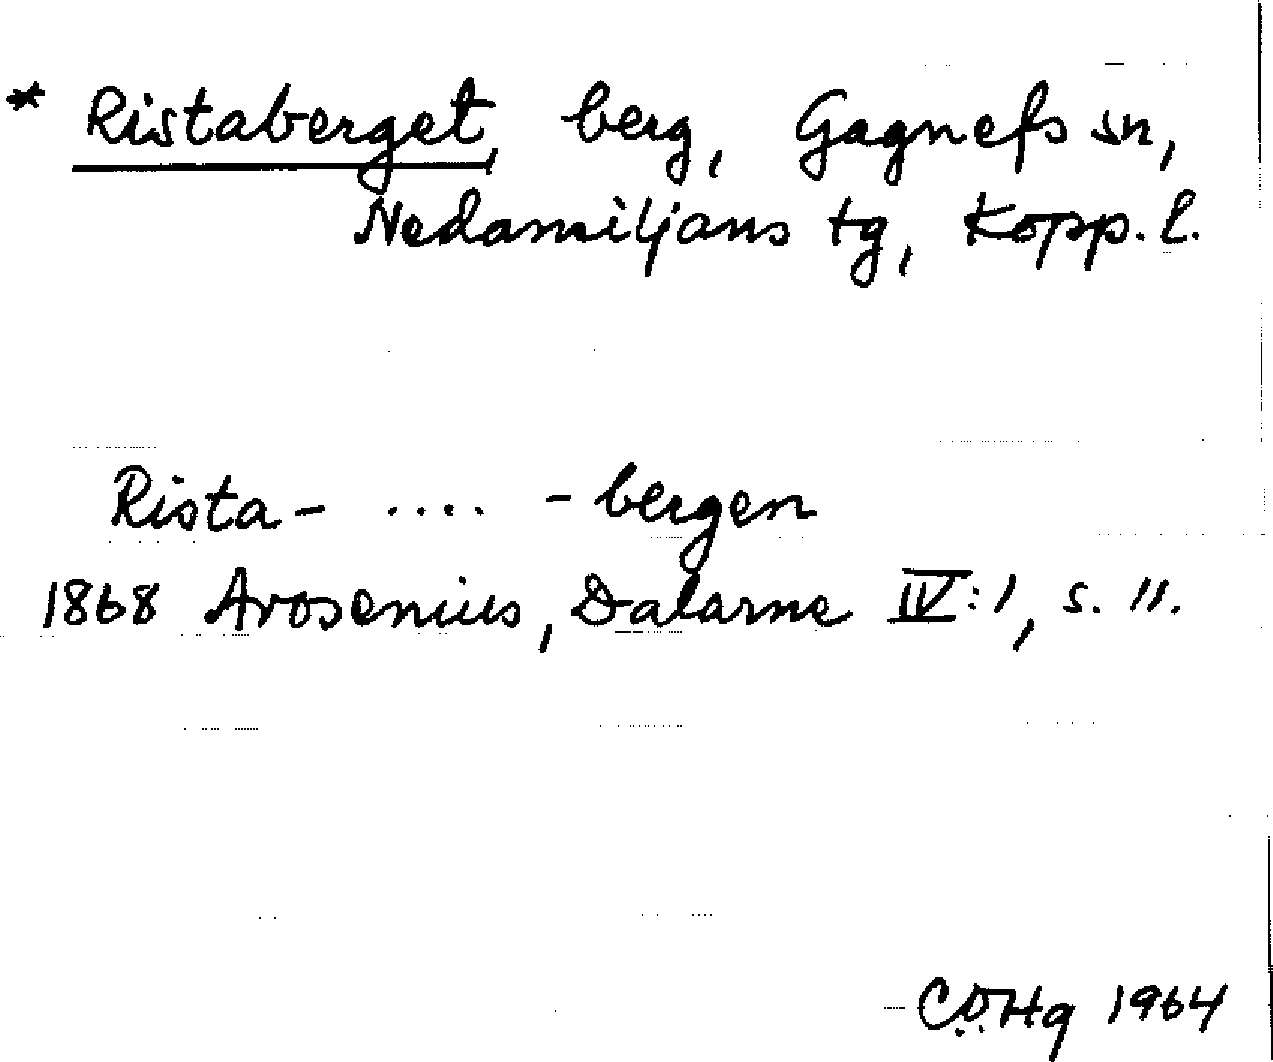 * Ristaberget, berg, Gagnefs sn,
Nedansiljans tg, Kopp. l.
Rista- .... -bergen
1868 Arosenius, Dalarne IV:1, s. 11.
C.O.Hg 1964